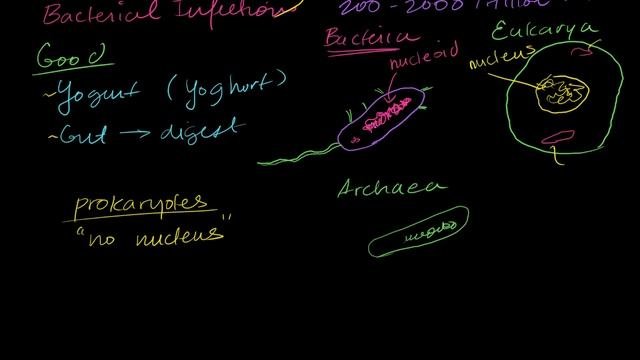 Bacterial Infection
200-2000
Good
~Yogurt (Yoghurt)
~Gut → digest
prokaryotes
"no nucleus"
Bacteria
nucleoid
Eukarya
nucleus
Archaea